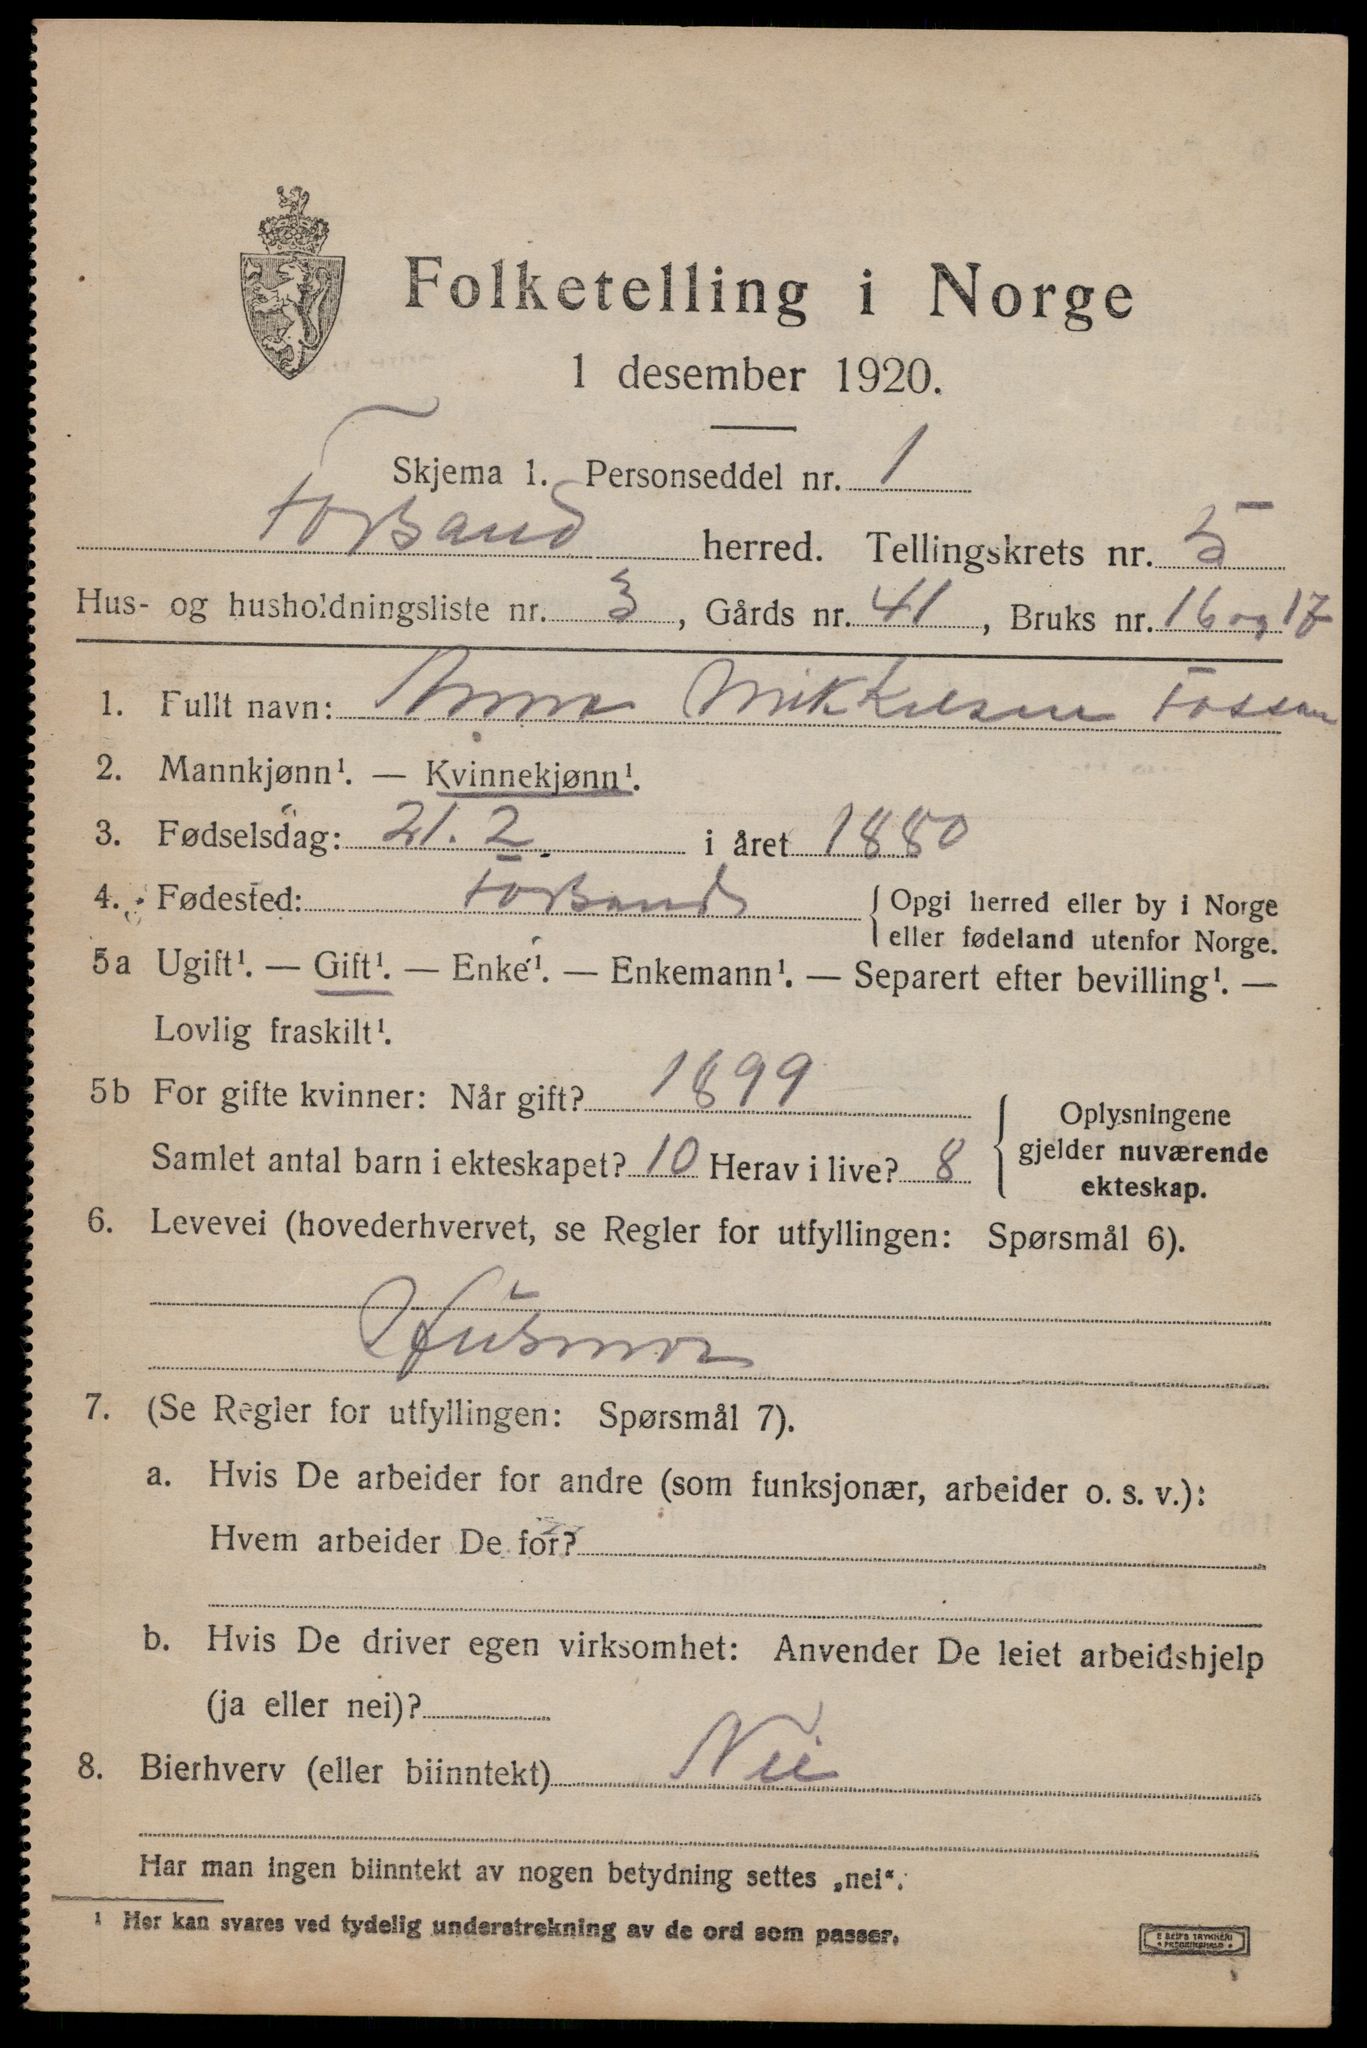 Folketelling i Norge
1 desember 1920.
Skjema 1. Personseddel nr. 1
Forsand herred. Tellingskrets nr. 5
Hus- og husholdningsliste nr. 3, Gårds nr. 41, Bruks nr. 16 og 17
1. Fullt navn: Anna Mikkelsen Fossan
2. Mannkjønn¹. — Kvinnekjønn¹.
3. Fødselsdag: 21. 2. i året 1880
4. Fødested: Forsand { Opgi herred eller by i Norge
eller fødeland utenfor Norge.
5a Ugift¹. — Gift¹. — Enke¹. — Enkemann¹. — Separert efter bevilling¹. —
Lovlig fraskilt¹.
5b For gifte kvinner: Når gift? 1899
Samlet antal barn i ekteskapet? 10 Herav i live? 8
{ Oplysningene
gjelder nuværende
ekteskap.
6. Levevei (hovederhvervet, se Regler for utfyllingen: Spørsmål 6).
Husmor
7. (Se Regler for utfyllingen: Spørsmål 7).
a. Hvis De arbeider for andre (som funksjonær, arbeider o. s. v.):
Hvem arbeider De for?
b. Hvis De driver egen virksomhet: Anvender De leiet arbeidshjelp
(ja eller nei)?
8. Bierhverv (eller biinntekt) Nei
Har man ingen biinntekt av nogen betydning settes „nei“.
¹ Her kan svares ved tydelig understrekning av de ord som passer.
E SEM'S TRYKKERI
FREDRIKSHALD